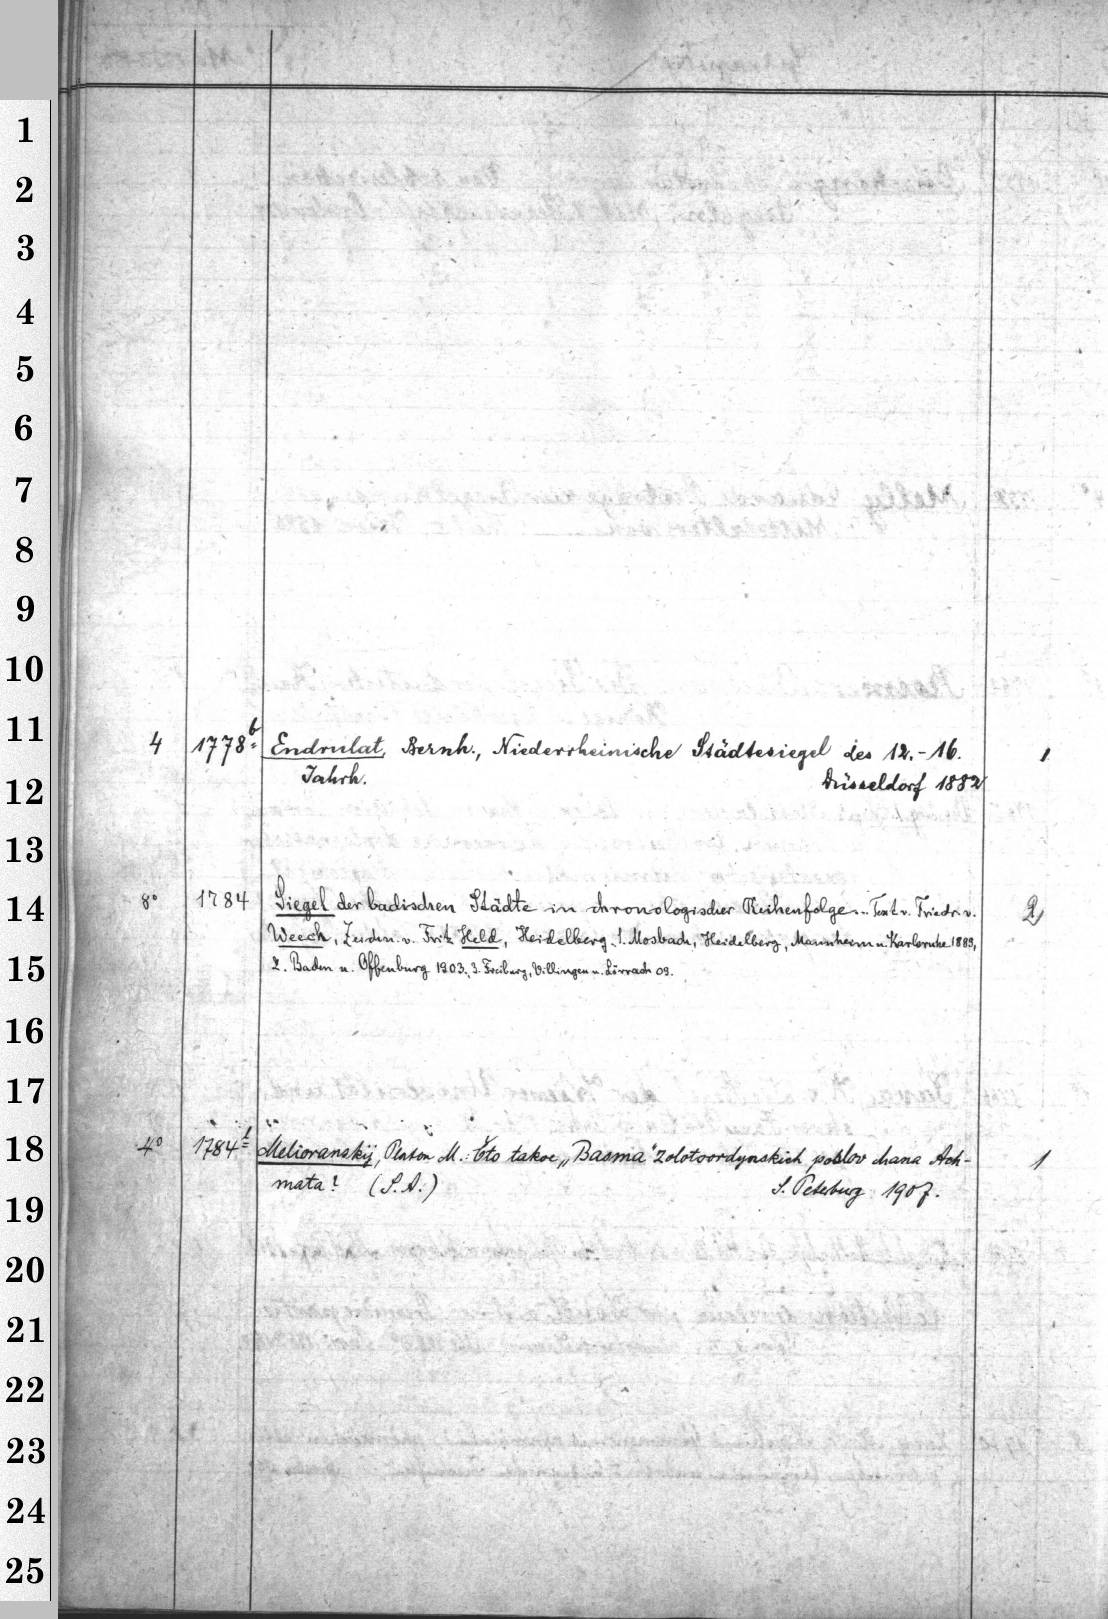 1
2
3
4
5
6
7
8
9
10
11
4 1778b. Endrulat, Bernh., Niederrheinische Städtesiegel des 12.-16. 1
12
Jahrh. Düsseldorf 1882
13
14
8° 1784 Siegel der badischen Städte in chronologischer Reihenfolge... Text v. Friedr. v. 2
Weech, Zeichn. v. Fritz Held, Heidelberg, 1. Mosbach, Heidelberg, Mannheim u. Karlsruhe 1889,
15
2. Baden u. Offenburg 1903, 3. Freiburg, Villingen u. Lörrach 09.
16
17
18
4° 1784 Melioranskij, Platon M.: Čto takoe „Basma" zolotoordynskich poslov chana Ach- 1
mata? (S. A.) S. Peterburg 1907.
19
20
21
22
23
24
25